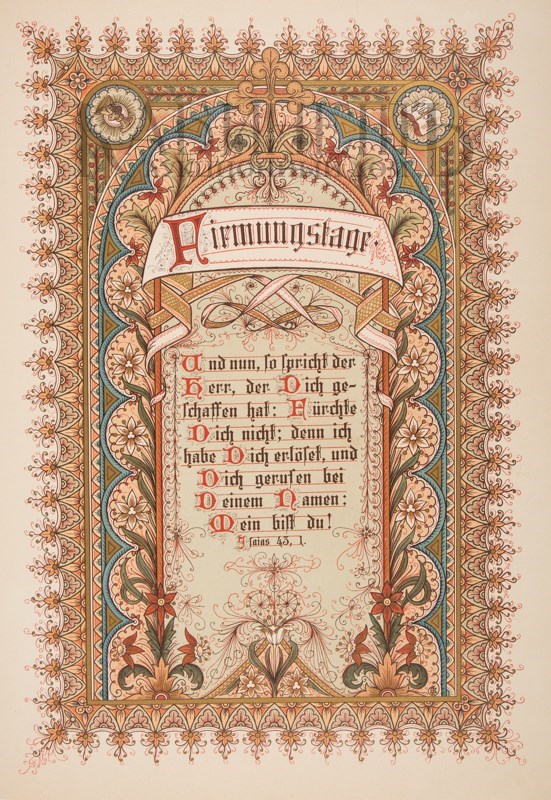 Firmungstage.
Und nun, so spricht der
Herr, der Dich ge-
schaffen hat: Fürchte
Dich nicht; denn ich
habe Dich erlöset, und
Dich gerufen bei
Deinem Namen:
Mein bist du!
Isaias 43, 1.